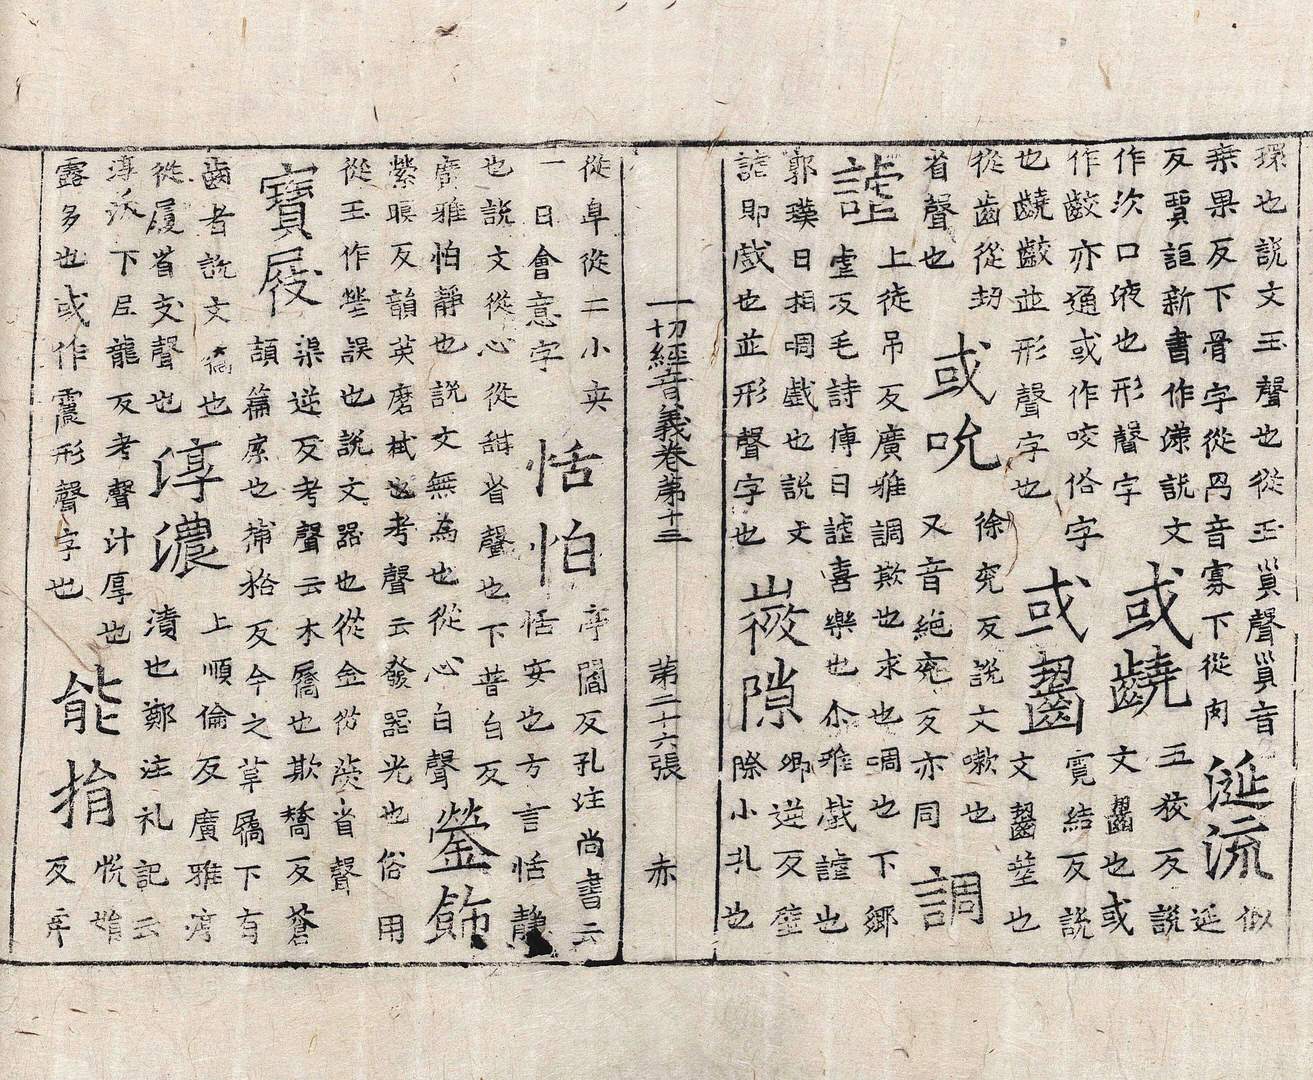 環也說文玉聲也從玉貟聲貟音
棄果反下骨字從冎音寡下從肉
涎流
似
延
反賈誼新書作漾說文
作次口液也形聲字
或齩
五狡反說
文齧也或
作齩亦通或作咬俗字
也齩齩並形聲字也
或齧
霓結反說
文齧噬也
從齒從㓞
省聲也
或吮
徐兖反說文嗽也
又音絶兖反亦同
調
謔
上徒吊反廣雅調欺也求也啁也下鄉
虐反毛詩傳曰謔喜樂也尒雅戲謔也
郭璞曰相啁戲也說文
謔即戲也並形聲字也
微隙
卿逆反壁
際小孔也
一切經音義卷第十三 第二十六張 赤
從阜從二小夾
一日會意字
恬怕
亭閻反孔注尚書云
恬安也方言恬静
也說文從心從甜省聲也下普白反
廣雅怕靜也說文無為也從心白聲
鎣飾
縈暝反韻英磨拭也考聲云發器光也俗用
從玉作瑩誤也說文器也從金從熒省聲
寶屐
渠逆反考聲云木屩也欺驕反蒼
頡篇屩也捕袷反今之草屩下有
齒者說文屩也
從履省支聲也
淳濃
上順倫反廣雅淳
漬也鄭注礼記云
淳沃下尼龍反考聲汁厚也
露多也或作震形聲字也
能捐
恱
反弃